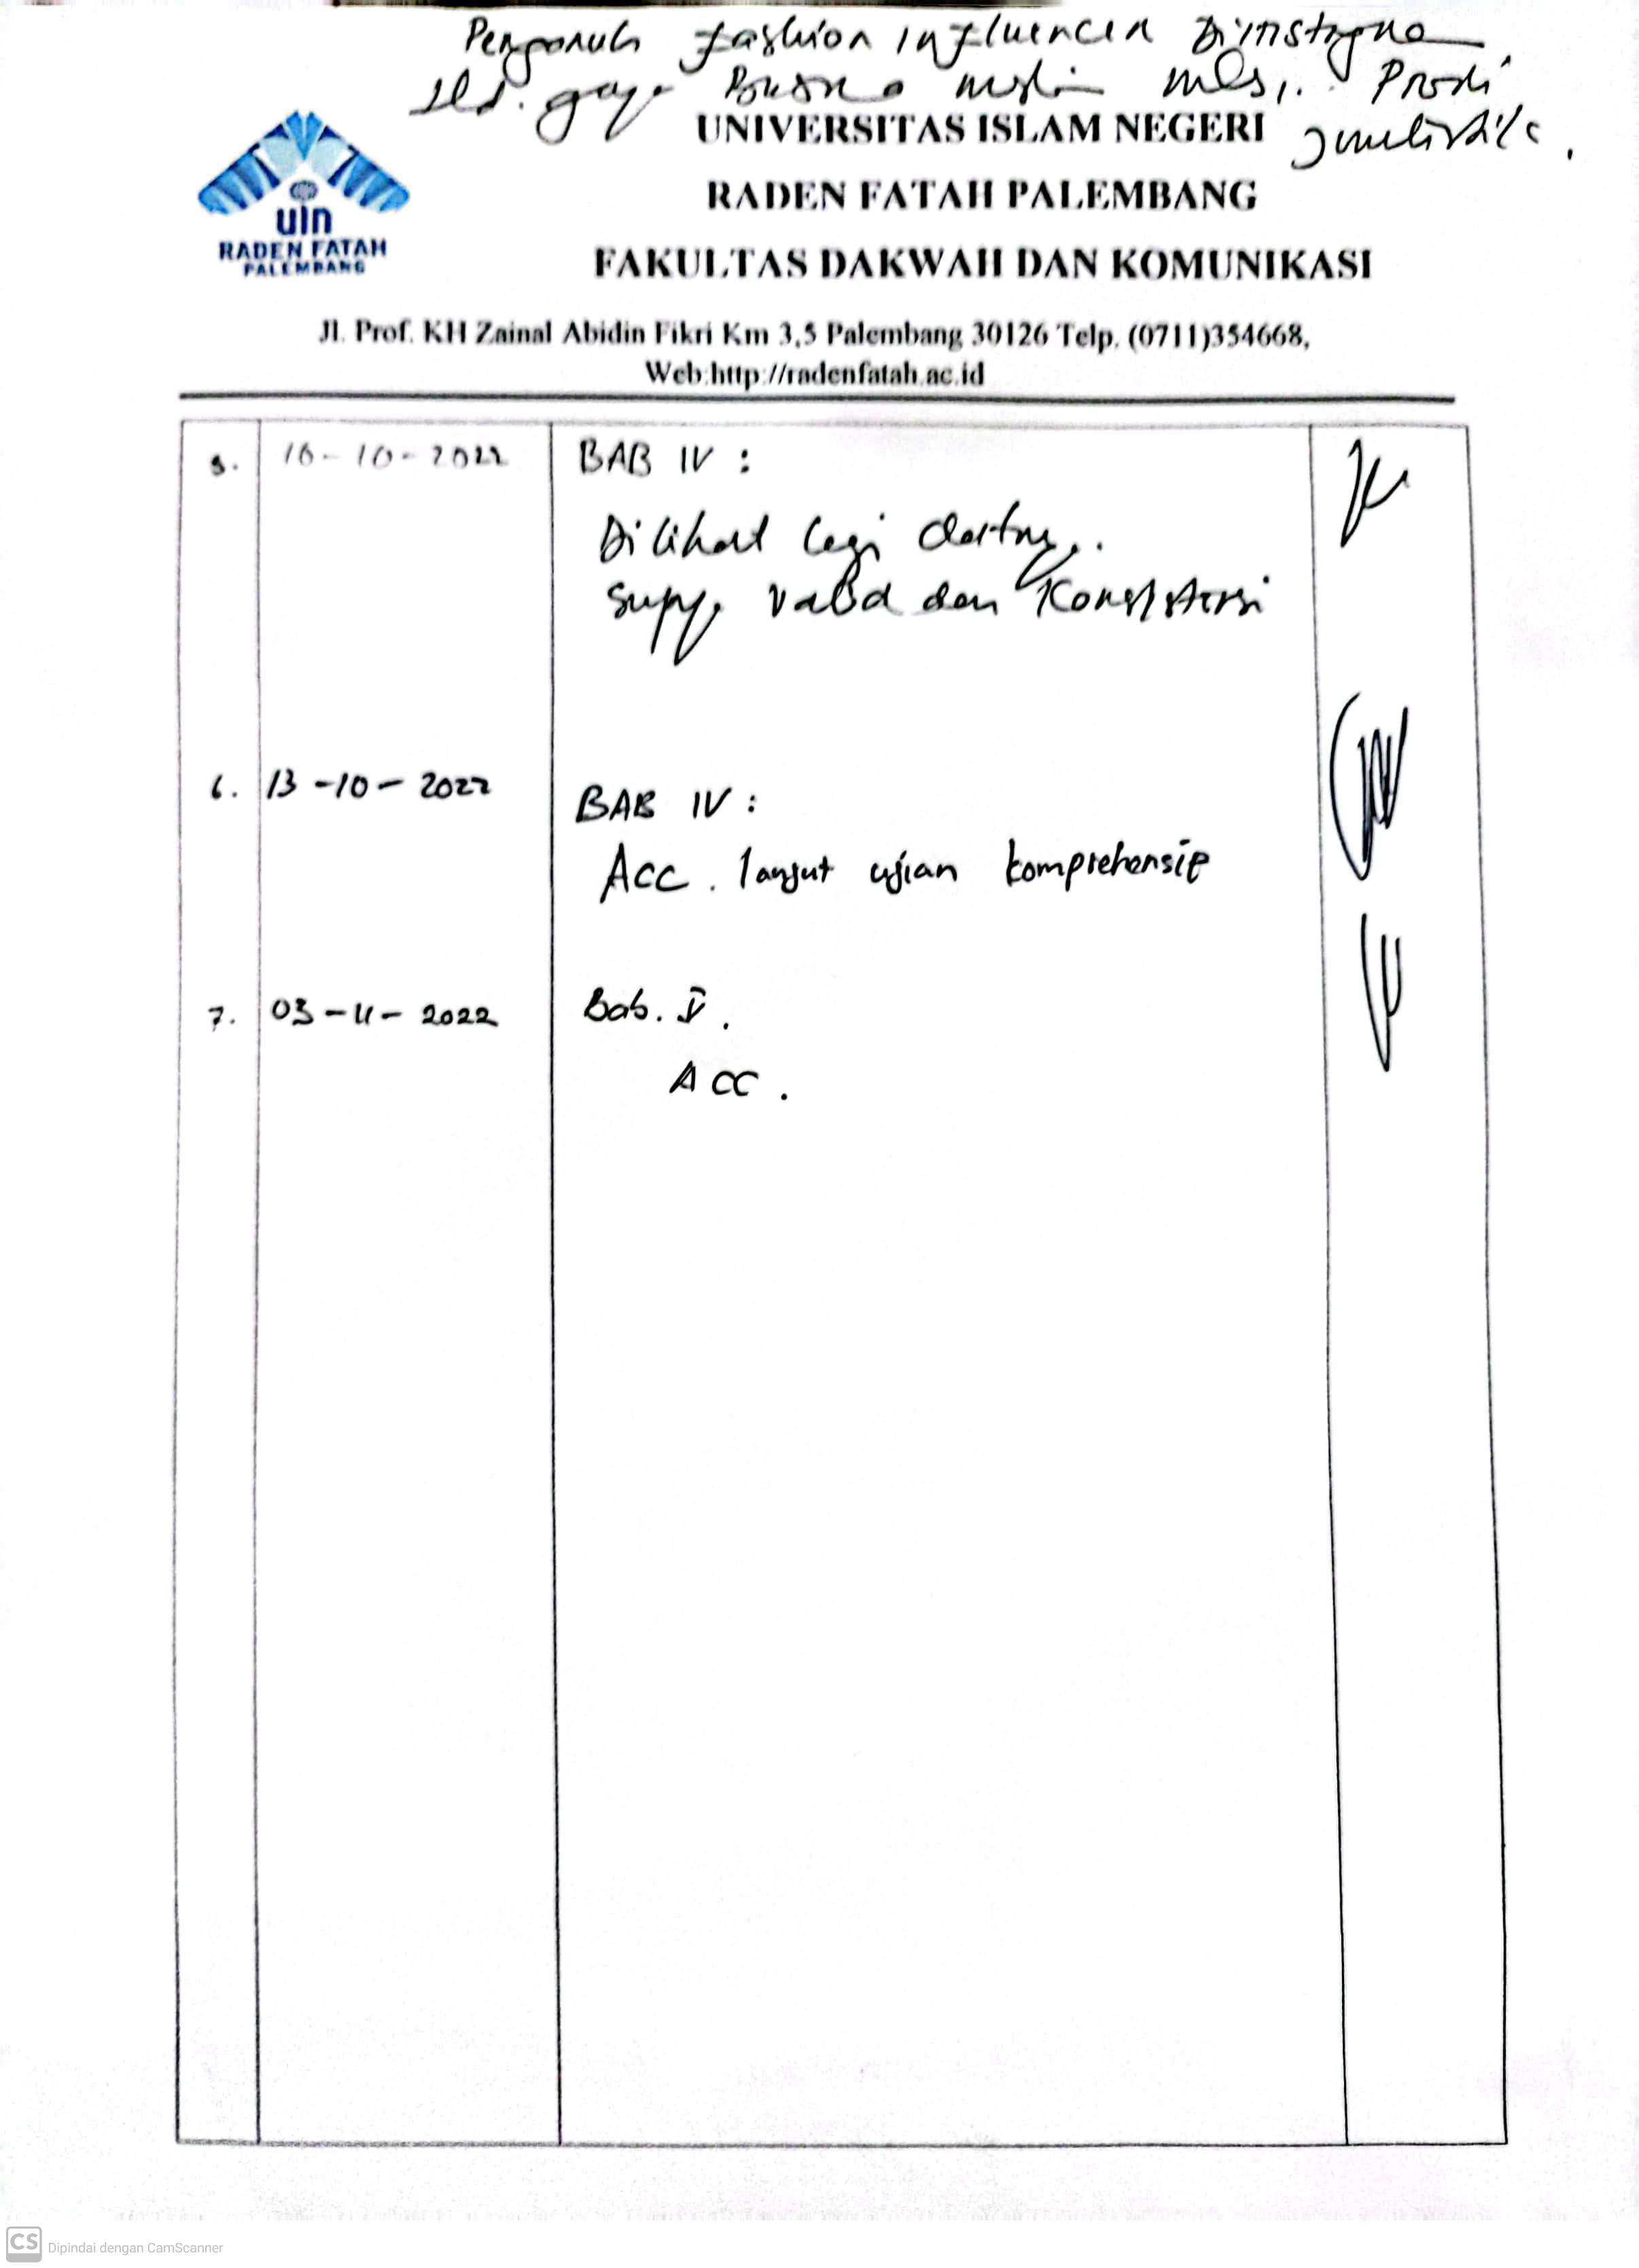 Pengaruh fashion influencer Diinstagram
gaya Busana muslim Prodi
Jurnalistik.
UNIVERSITAS ISLAM NEGERI
RADEN FATAH PALEMBANG
FAKULTAS DAKWAH DAN KOMUNIKASI
uin
RADEN FATAH
PALEMBANG
Jl. Prof. KH Zainal Abidin Fikri Km 3,5 Palembang 30126 Telp. (0711)354668,
Web:http://radenfatah.ac.id
5. 10-10-2022 BAB IV :
Dilihat lagi
valid dan
6. 13-10-2022 BAB IV :
Acc. lanjut ujian komprehensif
7. 03-11-2022 Bab. V.
ACC.
CS Dipindai dengan CamScanner